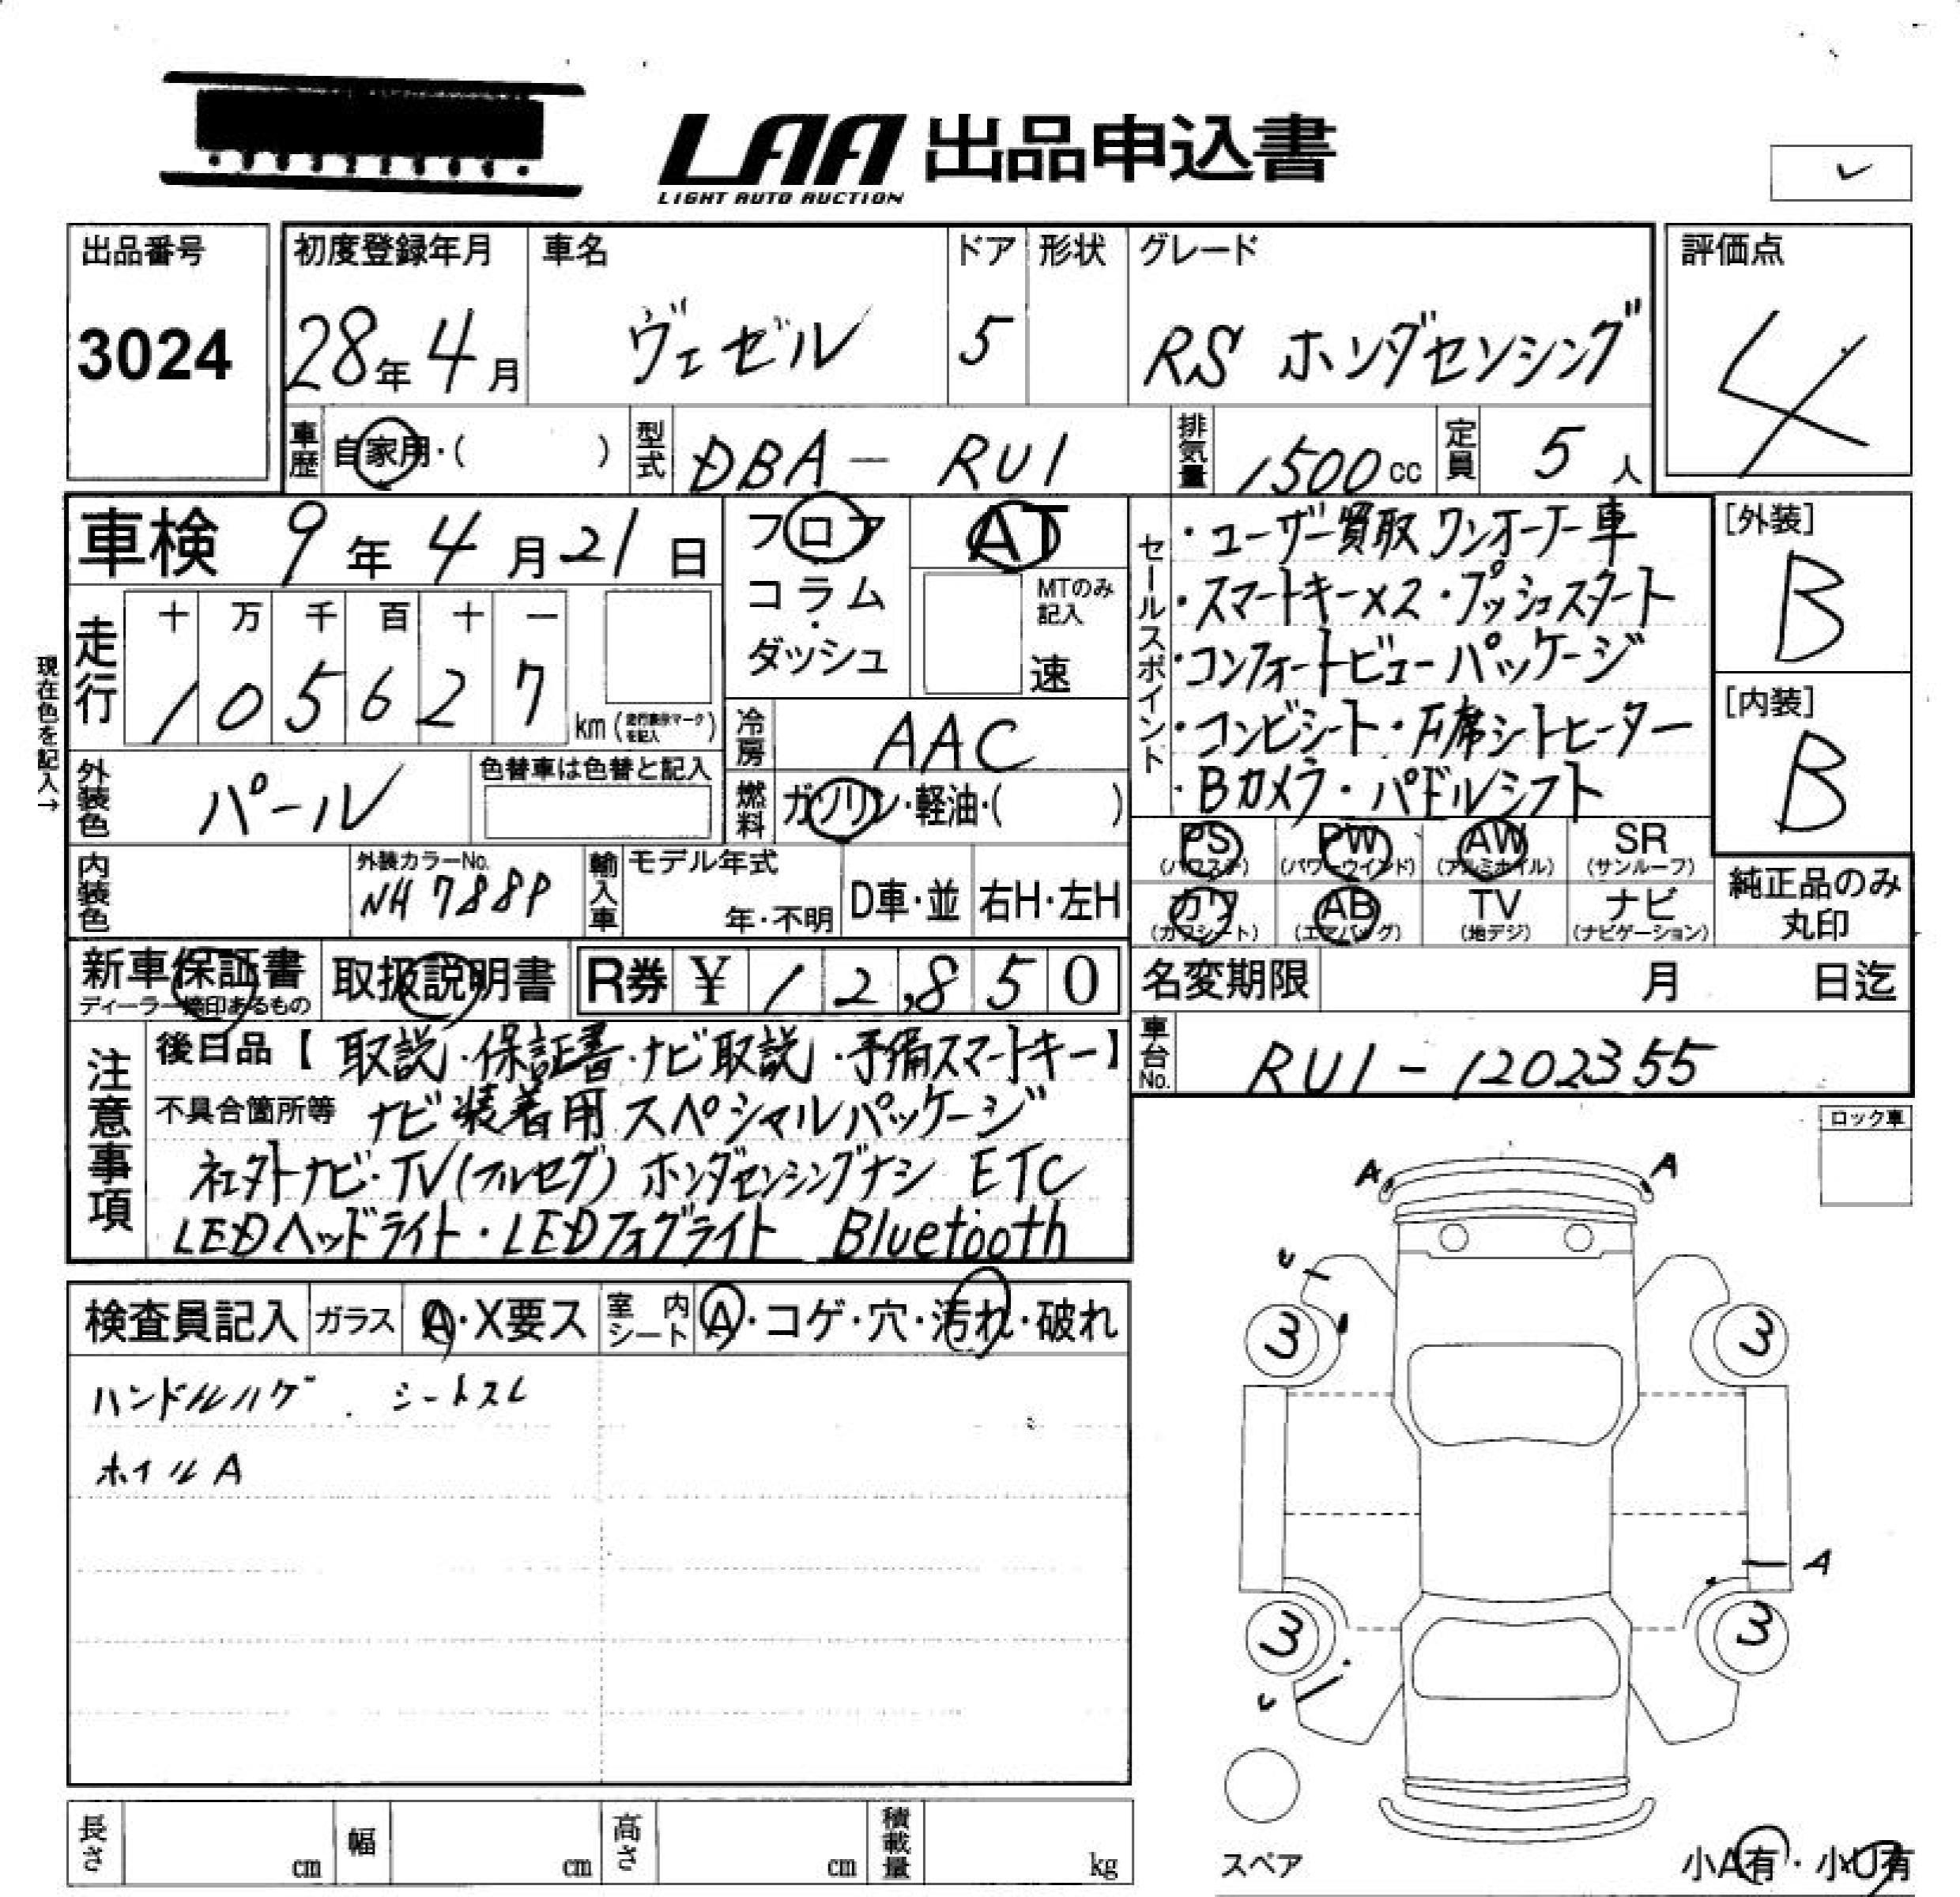 LAA 出品申込書
LIGHT AUTO AUCTION
出品番号
3024
初度登録年月 車名 ドア 形状 グレード
28年 4月 ヴェゼル 5 RS ホンダセンシング
評価点
4
車歴 自家用・( ) 型式 DBA - RU1 排気量 1500cc 定員 5人
車検 9年 4月 21日
フロア
コラム
・
ダッシュ
AT
MTのみ記入
速
現在色を記入→
走行 十 万 千 百 十 一
1 0 5 6 2 7 km (走行表示マークを記入)
冷房 AAC
外装色 パール 色替車は色替と記入
燃料 ガソリン・軽油・( )
内装色 外装カラーNo. NH788P
輸入車 モデル年式 年・不明 D車・並 右H・左H
セールスポイント
・ユーザー買取 ワンオーナー車
・スマートキー×2・プッシュスタート
・コンフォートビューパッケージ
・コンビシート・F席シートヒーター
・Bカメラ・パドルシフト
[外装]
B
[内装]
B
PS (パワステ) PW (パワーウインド) AW (アルミホイル) SR (サンルーフ)
カワ (カワシート) AB (エアバッグ) TV (地デジ) ナビ (ナビゲーション)
純正品のみ丸印
新車保証書 取扱説明書 R券 ¥ 12,850
ディーラー捺印あるもの
名変期限 月 日迄
車台No. RU1-1202355
注意事項
後日品【 取説・保証書・ナビ取説・予備スマートキー】
不具合箇所等 ナビ装着用スペシャルパッケージ
社外ナビ・TV(フルセグ) ホンダセンシングナシ ETC
LEDヘッドライト・LEDフォグライト Bluetooth
検査員記入 ガラス A・X要ス 室内シート A・コゲ・穴・汚れ・破れ
ハンドルハゲ . シートスレ
ホイルA
ロック車
A A
3 3
A
3 3
スペア
小A有・小U有
長さ cm 幅 cm 高さ cm 積載量 kg